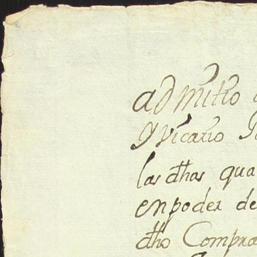 admitio
Y vicario
las dhas qua
en poder de
dho Compra